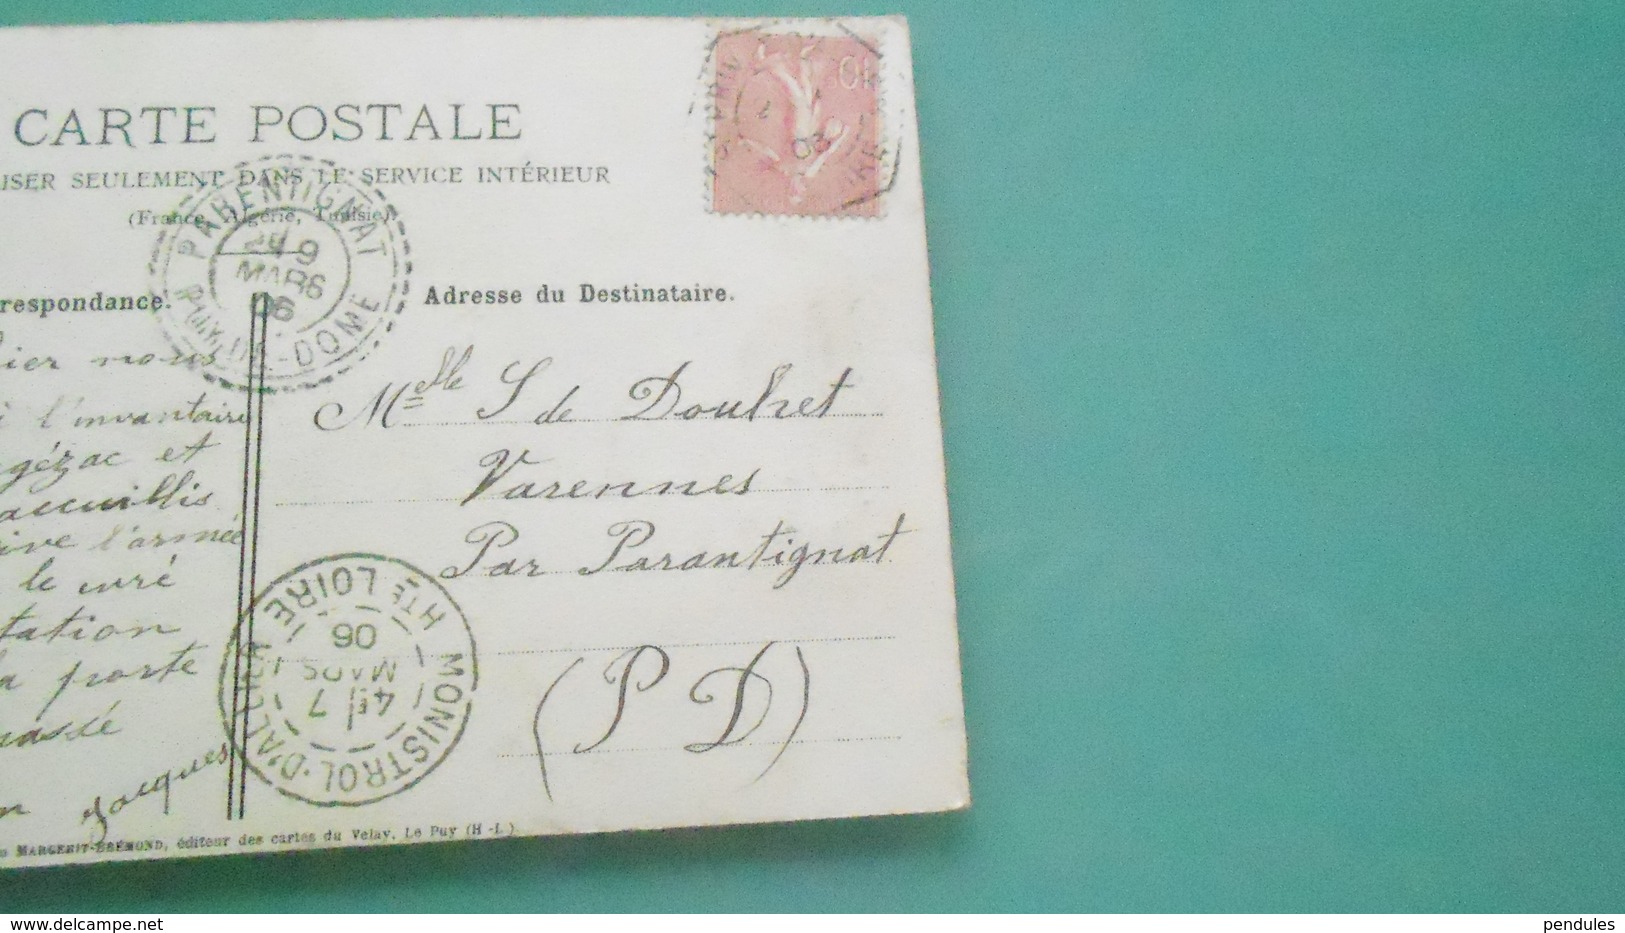 CARTE POSTALE
ISER SEULEMENT DANS LE SERVICE INTÉRIEUR
(France, Algérie, Tunisie)
10
PARENTIGNAT
9
MARS
06
PUY-DE-DOME
respondance.
Adresse du Destinataire.
hier nous
à l'inventaire
gézac et
accueillis
ive l'armée
le curé
tation
la porte
assé
Jacques
Melle S de Douhet
Varennes
Par Parantignat
(P D)
MONISTROL-D'ALLIER
HTE LOIRE
4E
7
MARS
06
MARGERIT-BRÉMOND, éditeur des cartes du Velay, Le Puy (H.-L.)
www.delcampe.net
pendules